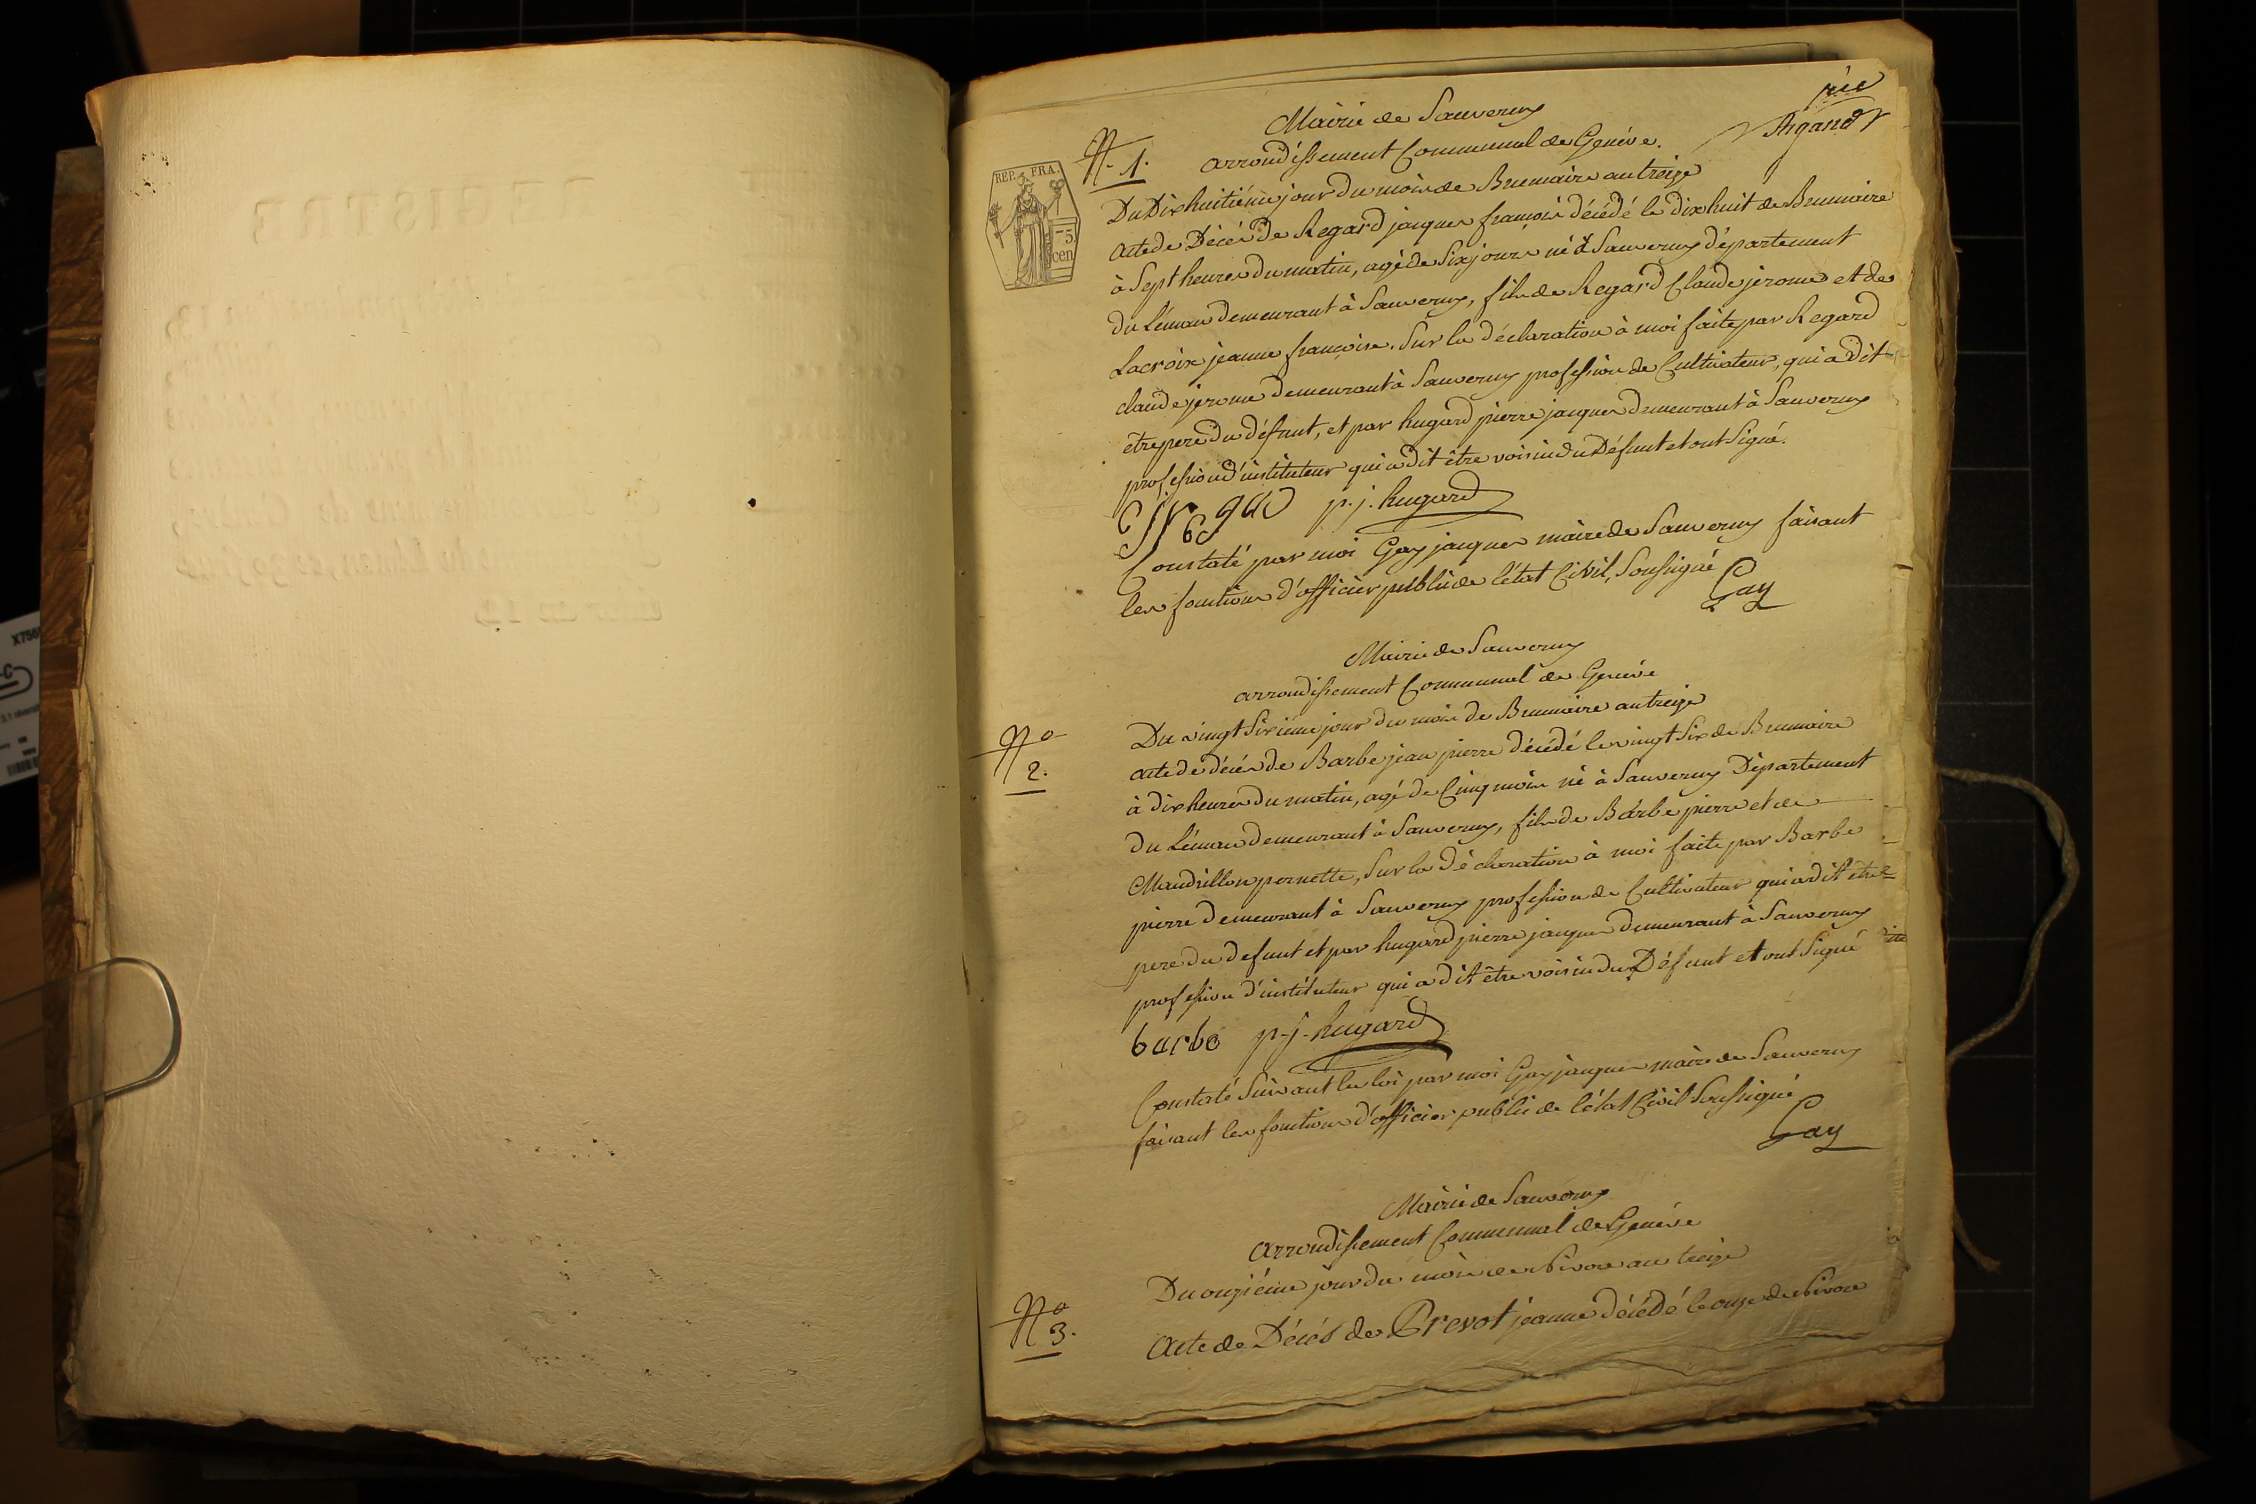 Argand
REP. FRA.
75
cen
N.° 1.
Mairie de Sauverny
arrondissement Communal de Genève.
Du Dix huitiéme jour du mois de Brumaire an treize
acte de Décés de Regard jacques françois décédé le dix huit de Brumaire
à Sept heures du matin, agé de Six jours né à Sauverny département
du Léman demeurant à Sauverny, fils de Regard Claude jerome et de
Lacroix jeanne françoise. Sur la déclaration à moi faite par Regard
claude jerome demeurant à Sauverny profession de Cultivateur, qui a dit
etre pere du défunt, et par hugard pierre jacques demeurant à Sauverny
profession d'instituteur qui a dit être voisin du Défunt et ont Signé.
p. j. hugard
Constaté par moi Gay jacques maire de Sauverny faisant
les fonctions d'officier public de l'état Civil, Soussigné
Gay
Mairie de Sauverny
arrondissement Communal de Genève
N.° 2.
Du vingt Sixiéme jour du mois de Brumaire an treize
acte de décés de Barbe jean pierre décédé le vingt Six de Brumaire
à dix heures du matin, agé de Cinq mois né à Sauverny Département
du Léman demeurant à Sauverny, fils de Barbe pierre et de
Mandrillon pernette, Sur la Déclaration à moi faite par Barbe
pierre demeurant à Sauverny profession de Cultivateur qui a dit etre
pere du defunt et par hugard pierre jacques demeurant à Sauverny
profession d'instituteur qui a dit être voisin du Défunt et ont Signé
barbe p-j-hugard
Constaté Suivant la loi par moi Gay jacques maire de Sauverny
faisant les fonctions d'officier public de l'état Civil Soussigné
Gay
Mairie de Sauverny
arrondissement Communal de Genève
Du onziéme jour du mois de nivose an treize
N.° 3.
Acte de Décés de Prevot jeanne décédé le onze de nivose